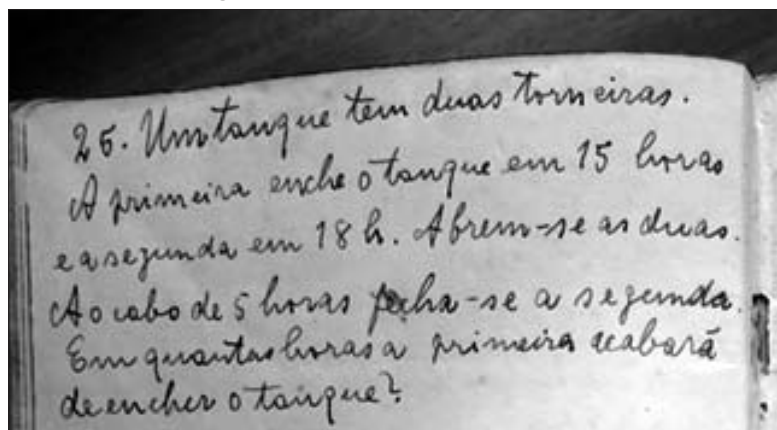 25. Um tanque tem duas torneiras.
A primeira enche o tanque em 15 horas
e a segunda em 18 h. Abrem-se as duas.
Ao cabo de 5 horas fecha-se a segunda.
Em quantas horas a primeira acabará
de encher o tanque?